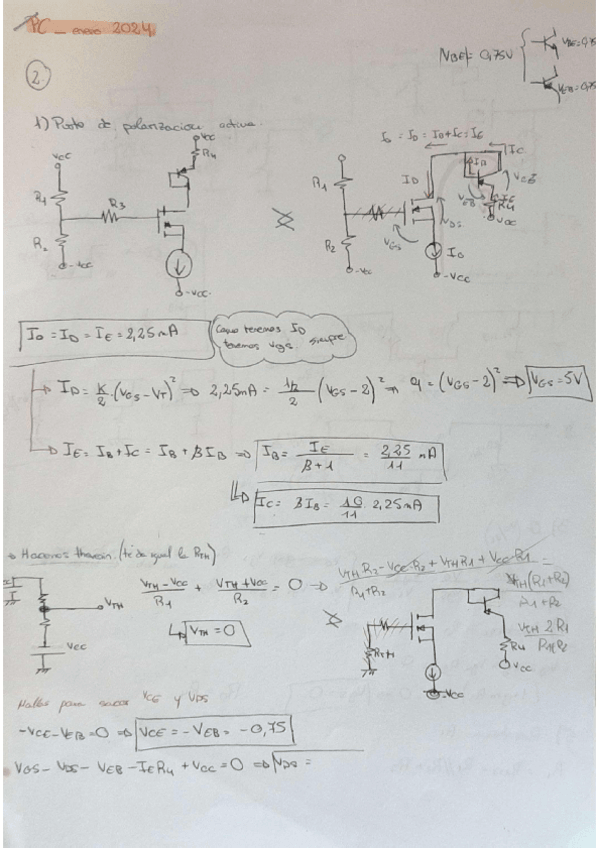 PC _ enero 2024
|VBE| = 0,75V
VBE=0,75
VEB=0,75
2.
1) Punto de polarización activa.
VCC
R4
VCC
R1
R3
R2
-VCC
-VCC
I0 = ID = IB+IC = IE
IC
R1
ID
IB
VCE
VEB
IE
R4
VCC
VGS
VDS
R2
I0
-VCC
-VCC
I0 = ID = IE = 2,25 mA
Como tenemos ID
tenemos VGS siempre
ID = K/2 · (VGS - VT)² ⇒ 2,25mA = 1/2 (VGS - 2)² ⇒ 9/4 = (VGS - 2)² ⇒ VGS = 5V
IE = IB + IC = IB + βIB ⇒ IB = IE/(β+1) = 2,25/11 mA
IC = βIB = 10/11 · 2,25mA
Hacemos thevenin (te da igual la RTH)
(VTH - VCC)/R1 + (VTH + VCC)/R2 = 0 ⇒ (VTH R2 - VCC·R2 + VTH R1 + VCC·R1)/(R1+R2) =
VTH (R1+R2)
R1+R2
VTH 2R1
VTH
VTH = 0
VCC
RTH
R4
VCC
-VCC
Mallas para sacar VCE y VDS
-VCE - VEB = 0 ⇒ VCE = -VEB = -0,75
VGS - VDS - VEB - IE R4 + VCC = 0 ⇒ VDS =